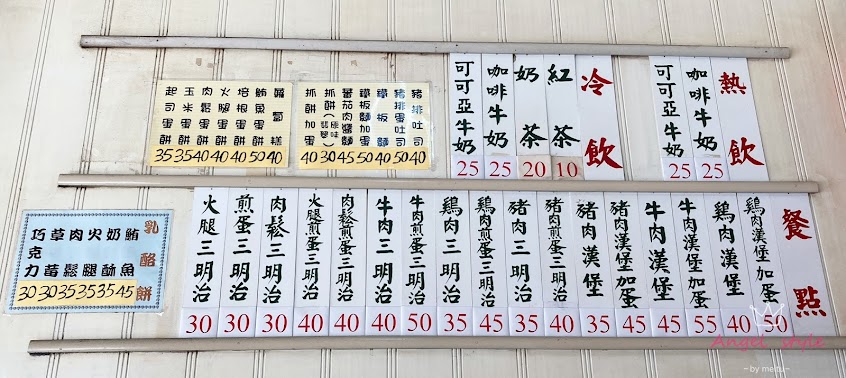 熱飲
咖啡牛奶 25
可可亞牛奶 25
冷飲
紅茶 10
奶茶 20
咖啡牛奶 25
可可亞牛奶 25
豬排吐司 40
豬排蛋吐司 50
鐵板麵 40
鐵板麵加蛋 50
蕃茄肉醬麵 45
抓餅(原味 30
抓餅加蛋 40
蘿蔔糕 40
鮪魚蛋餅 50
培根蛋餅 40
火腿蛋餅 40
肉鬆蛋餅 40
玉米蛋餅 35
起司蛋餅 35
餐點
雞肉漢堡加蛋 50
雞肉漢堡 40
牛肉漢堡加蛋 55
牛肉漢堡 45
豬肉漢堡加蛋 45
豬肉漢堡 35
豬肉煎蛋三明治 40
豬肉三明治 35
雞肉煎蛋三明治 45
雞肉三明治 35
牛肉煎蛋三明治 50
牛肉三明治 40
肉鬆煎蛋三明治 40
火腿煎蛋三明治 40
肉鬆三明治 30
煎蛋三明治 30
火腿三明治 30
乳酪餅
鮪魚 45
奶酥 35
火腿 35
肉鬆 35
草莓 30
巧克力 30
Angel style
~by meitu~